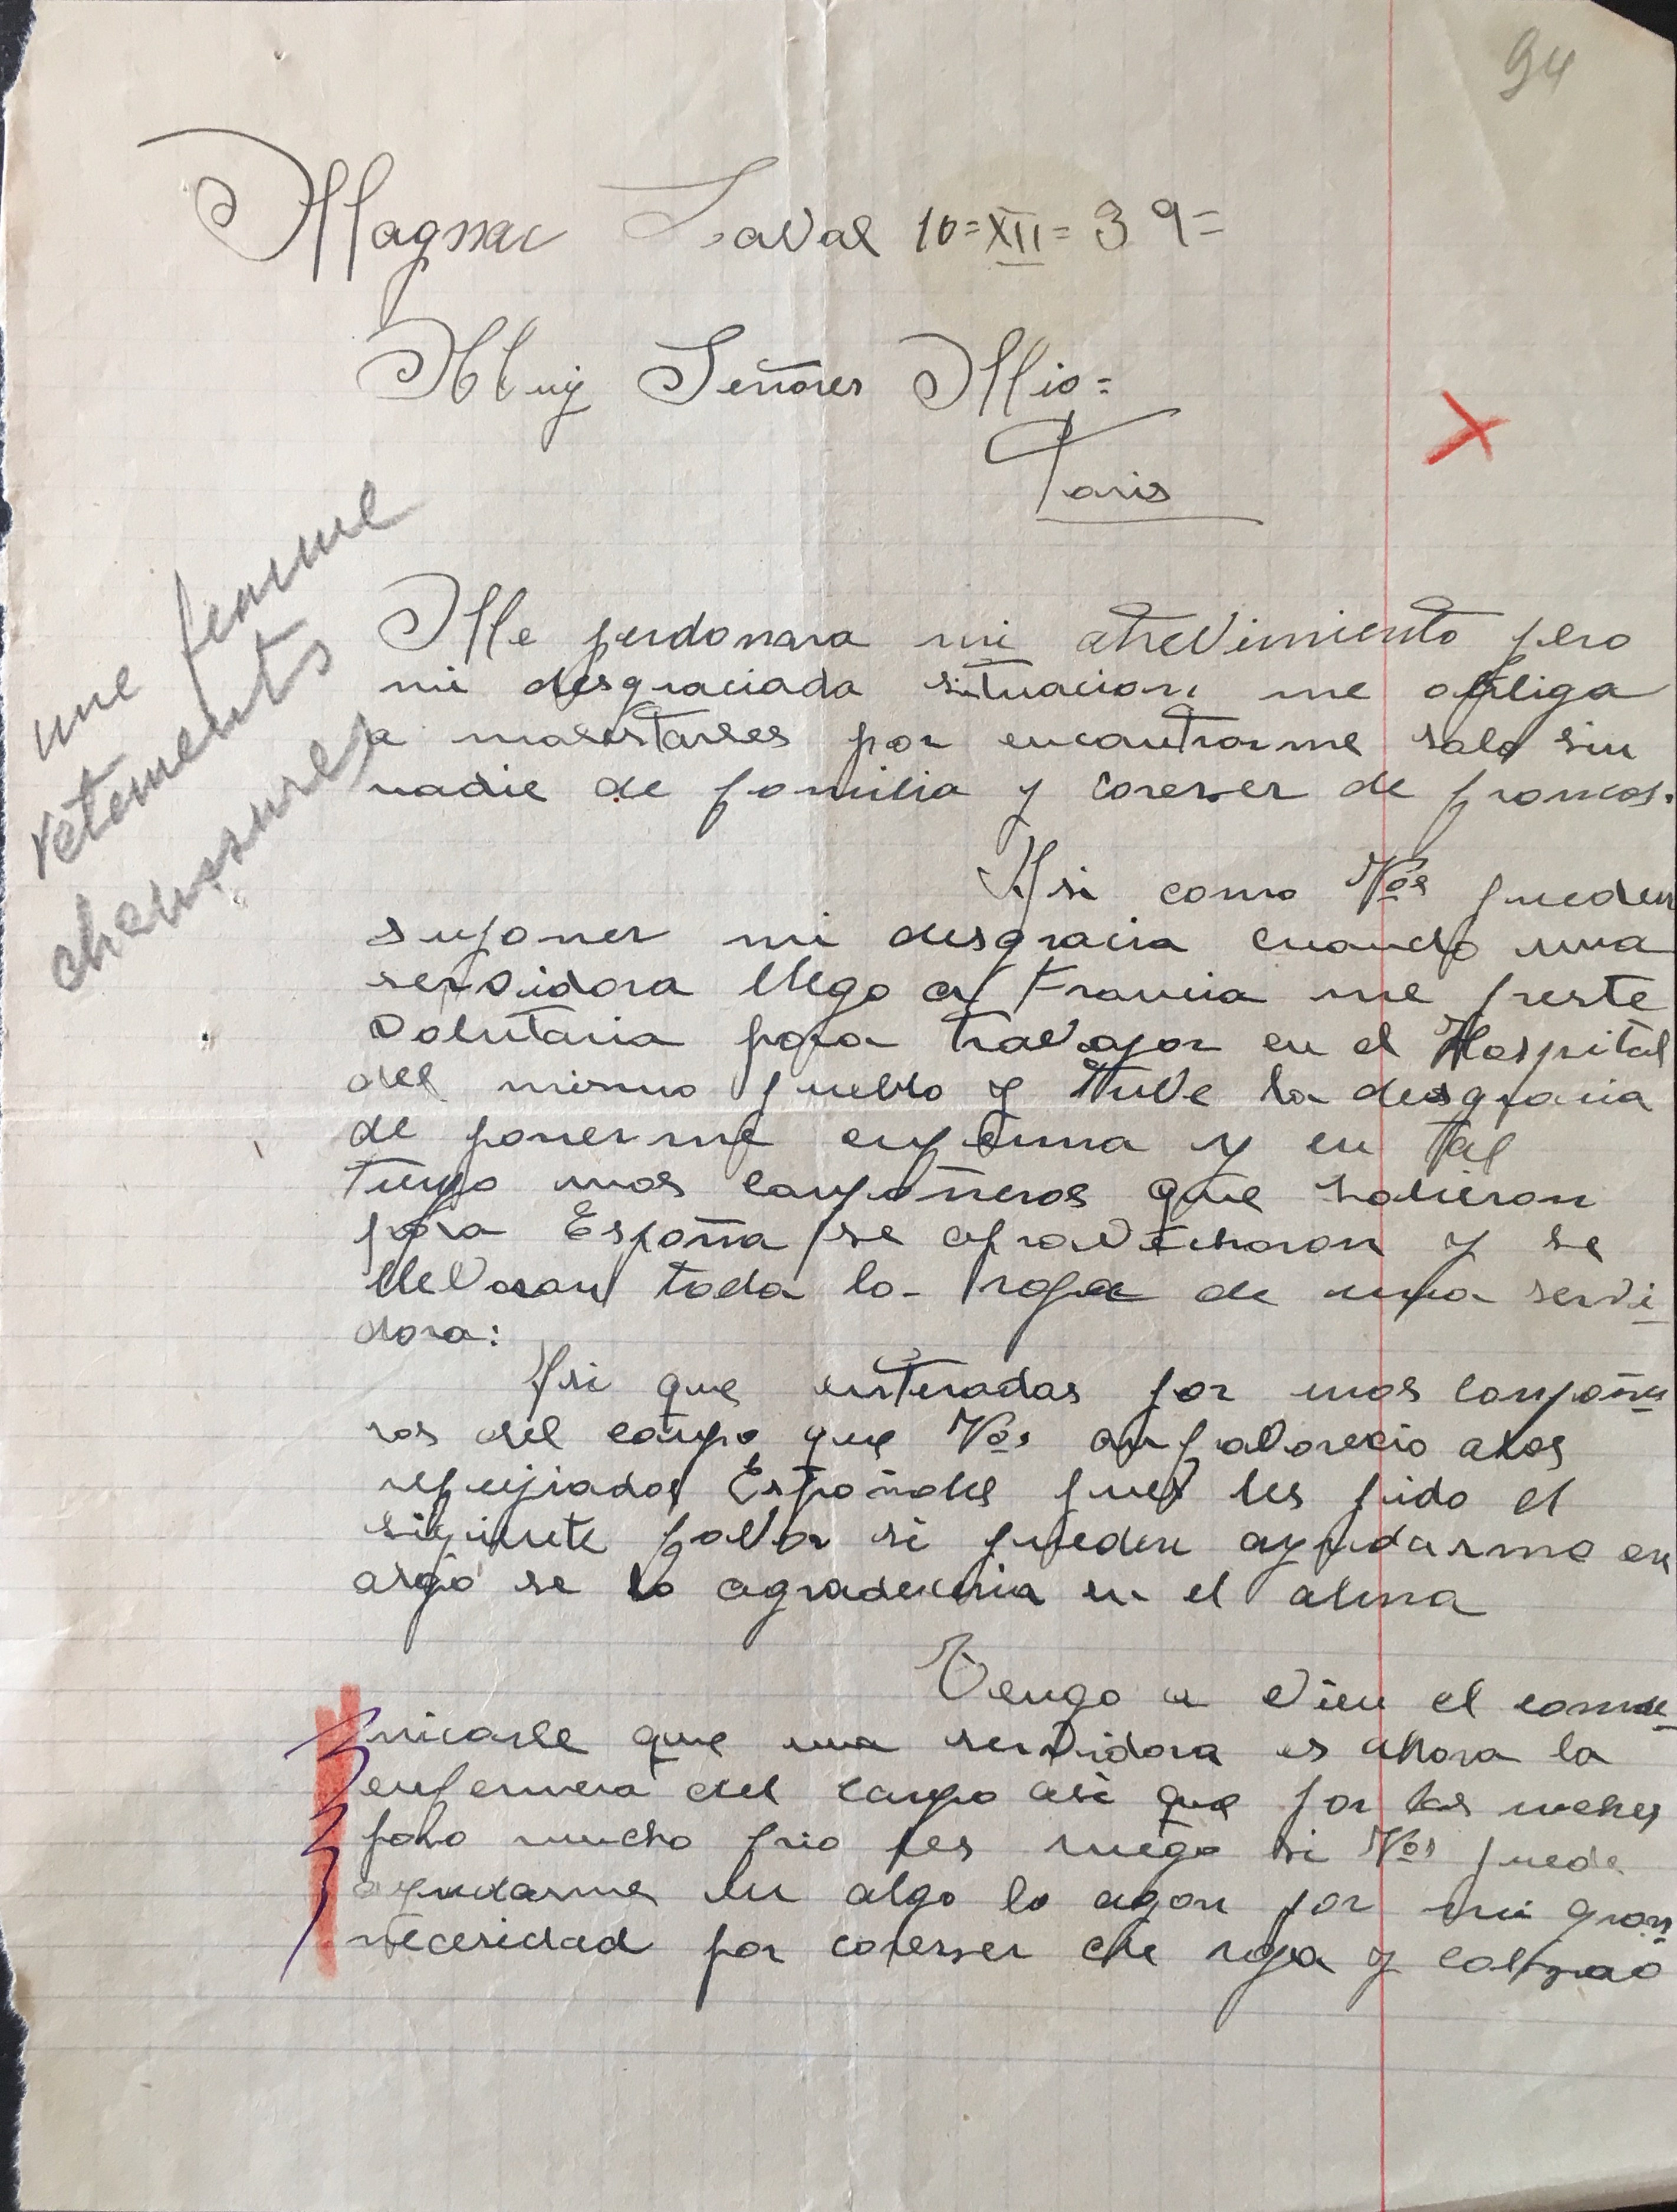 94
Magnac Laval 10=XII=39=
Muy Señores Mio=
Paris
une femme
vetements
chaussures
Me perdonara mi atrevimiento pero
mi desgraciada situacion me obliga
a molestarles por encontrarme sola sin
nadie de familia y careser de francos.
Asi como Vds pueden
suponer mi desgracia cuando una
servidora llego a Francia me preste
volutaria para travajar en el Hospital
del mismo pueblo y tuve la desgracia
de ponerme enferma y en tal
tiempo unos compañeros que salieron
para España se aprovecharon y se
llevaron toda la ropa de una servi
dora:
Asi que enteradas por unos compañe
ros del campo que Vds an favorecio alos
refujiados Españoles pues les pido el
siguiente favor si pueden ayudarme en
algo se lo agradeceria en el alma
Tengo a vien el comu
nicarle que una servidora es ahora la
enfermera del campo asi que por las noches
paso mucho frio les ruego si Vds puede
ayudarme en algo lo agan por mi gran
necesidad por careser de ropa y calzado